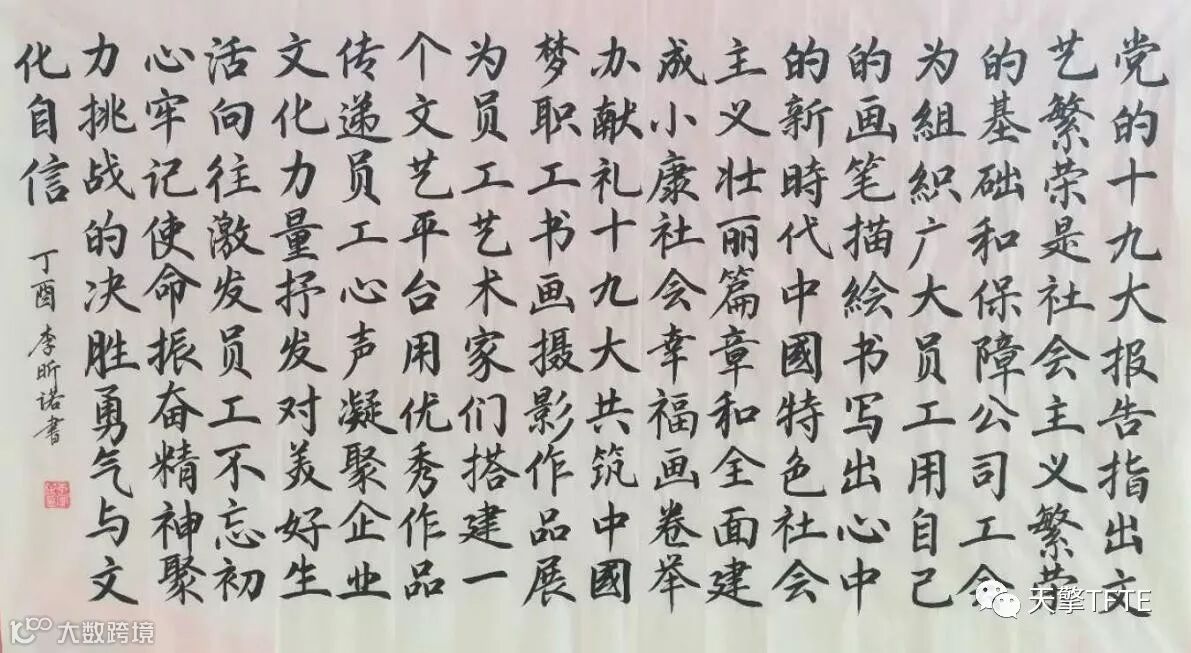 党的十九大报告指出文
艺繁荣是社会主义繁荣
的基础和保障公司工会
为組織广大员工用自己
的画笔描絵书写出心中
的新時代中國特色社会
主义壮丽篇章和全面建
成小康社会幸福画卷举
办献礼十九大共筑中國
梦职工书画摄影作品展
为员工艺术家们搭建一
个文艺平台用优秀作品
传递员工心声凝聚企业
文化力量抒发对美好生
活向往激发员工不忘初
心牢记使命振奋精神聚
力挑战的决胜勇气与文
化自信
丁酉李昕诺書
天擎TFTE
100 大数跨境